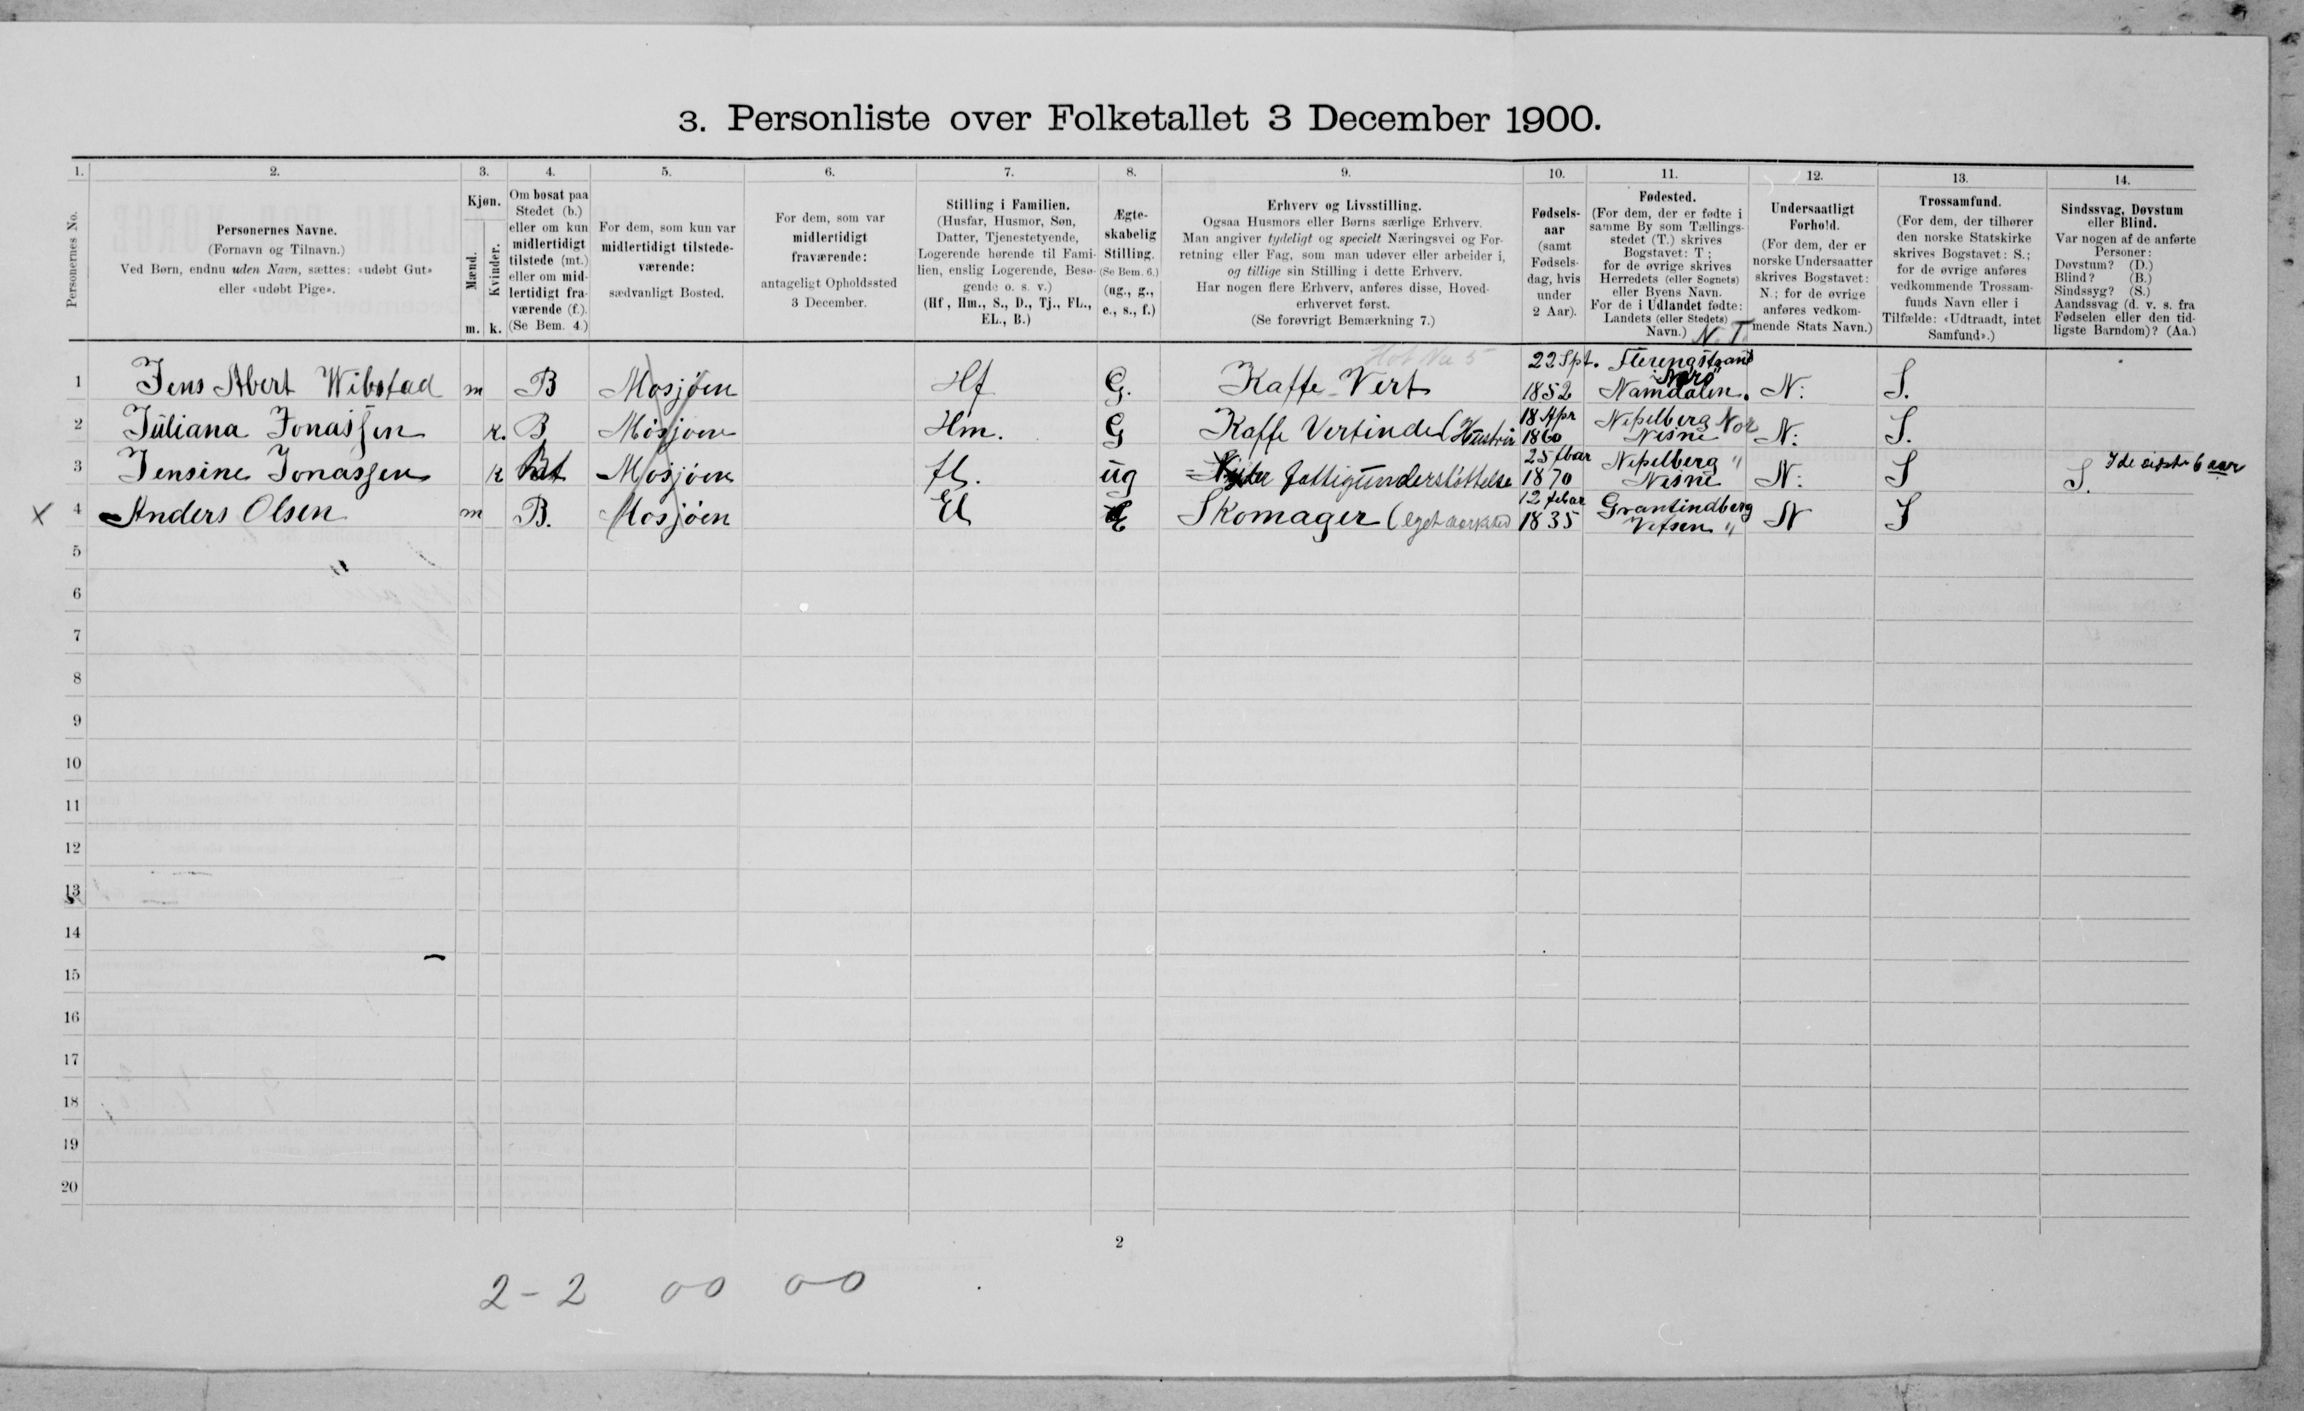 3. Personliste over Folketallet 3 December 1900.
1. 2. 3. 4. 5. 6. 7. 8. 9. 10. 11. 12. 13. 14.
Personernes No.
Personernes Navne.
(Fornavn og Tilnavn.)
Ved Børn, endnu uden Navn, sættes: «udøbt Gut»
eller «udøbt Pige».
Kjøn.
Mænd.
Kvinder.
m. k.
Om bosat paa
Stedet (b.)
eller om kun
midlertidigt
tilstede (mt.)
eller om mid-
lertidigt fra-
værende (f.).
(Se Bem. 4.)
For dem, som kun var
midlertidigt tilstede-
værende:
sædvanligt Bosted.
For dem, som var
midlertidigt
fraværende:
antageligt Opholdssted
3 December.
Stilling i Familien.
(Husfar, Husmor, Søn,
Datter, Tjenestetyende,
Logerende hørende til Fami-
lien, enslig Logerende, Besø-
gende o. s. v.)
(Hf, Hm., S., D., Tj., FL.,
EL., B.)
Ægte-
skabelig
Stilling.
(Se Bem. 6.)
(ug., g.,
e., s., f.)
Erhverv og Livsstilling.
Ogsaa Husmors eller Børns særlige Erhverv.
Man angiver tydeligt og specielt Næringsvei og For-
retning eller Fag, som man udøver eller arbeider i,
og tillige sin Stilling i dette Erhverv.
Har nogen flere Erhverv, anføres disse, Hoved-
erhvervet først.
(Se forøvrigt Bemærkning 7.)
Fødsels-
aar
(samt
Fødsels-
dag, hvis
under
2 Aar).
Fødested.
(For dem, der er fødte i
samme By som Tællings-
stedet (T.) skrives
Bogstavet: T;
for de øvrige skrives
Herredets (eller Sognets)
eller Byens Navn.
For de i Udlandet fødte:
Landets (eller Stedets)
Navn.) N. T.
Undersaatligt
Forhold.
(For dem, der er
norske Undersaatter
skrives Bogstavet:
N.; for de øvrige
anføres vedkom-
mende Stats Navn.)
Trossamfund.
(For dem, der tilhører
den norske Statskirke
skrives Bogstavet: S.;
for de øvrige anføres
vedkommende Trossam-
funds Navn eller i
Tilfælde: «Udtraadt, intet
Samfund».)
Sindssvag, Døvstum
eller Blind.
Var nogen af de anførte
Personer:
Døvstum? (D.)
Blind? (B.)
Sindssyg? (S.)
Aandssvag (d. v. s. fra
Fødselen eller den tid-
ligste Barndom)? (Aa.)
1 Jens Abert Wibstad m B Mosjøen Hf G. Kaffe-Vert 22 Spt. 1852 Nærø Namdalen. N: S.
2 Juliana Jonassen k. B Mosjøen Hm. G Kaffe Vertinde (Hustru 18 Apr 1860 Nepelberg Nor Nesne N: S.
3 Jensine Jonassen k Mosjøen fl. ug fattigunderstøttelse 25 fbar 1870 Nepelberg " Nesne N: S S. I de sidste 6 aar
x 4 Anders Olsen m B. Mosjøen El E Skomager (eget værksted 12 febar 1835 Grantindberg Vefsen " N S
5
6
7
8
9
10
11
12
13
14
15
16
17
18
19
20
2
2-2 00 00